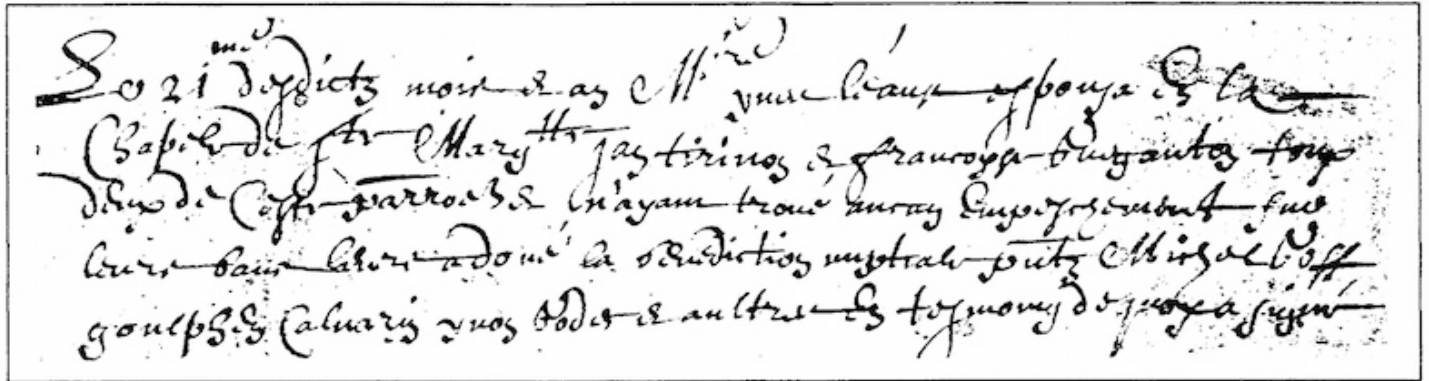 Le 21me desdictz mois et an Mire yves léaus espousa en la
Chapele de ste Margtte jan tirinon et francoyse tous
deux de Ceste parroche et n'ayant trové aucun Empeschement sur
leurs bans leurs a doné la benediction nuptiale pntz Michel
goulphen Calvarin yvon et aultres En tesmoing de quoy a signé